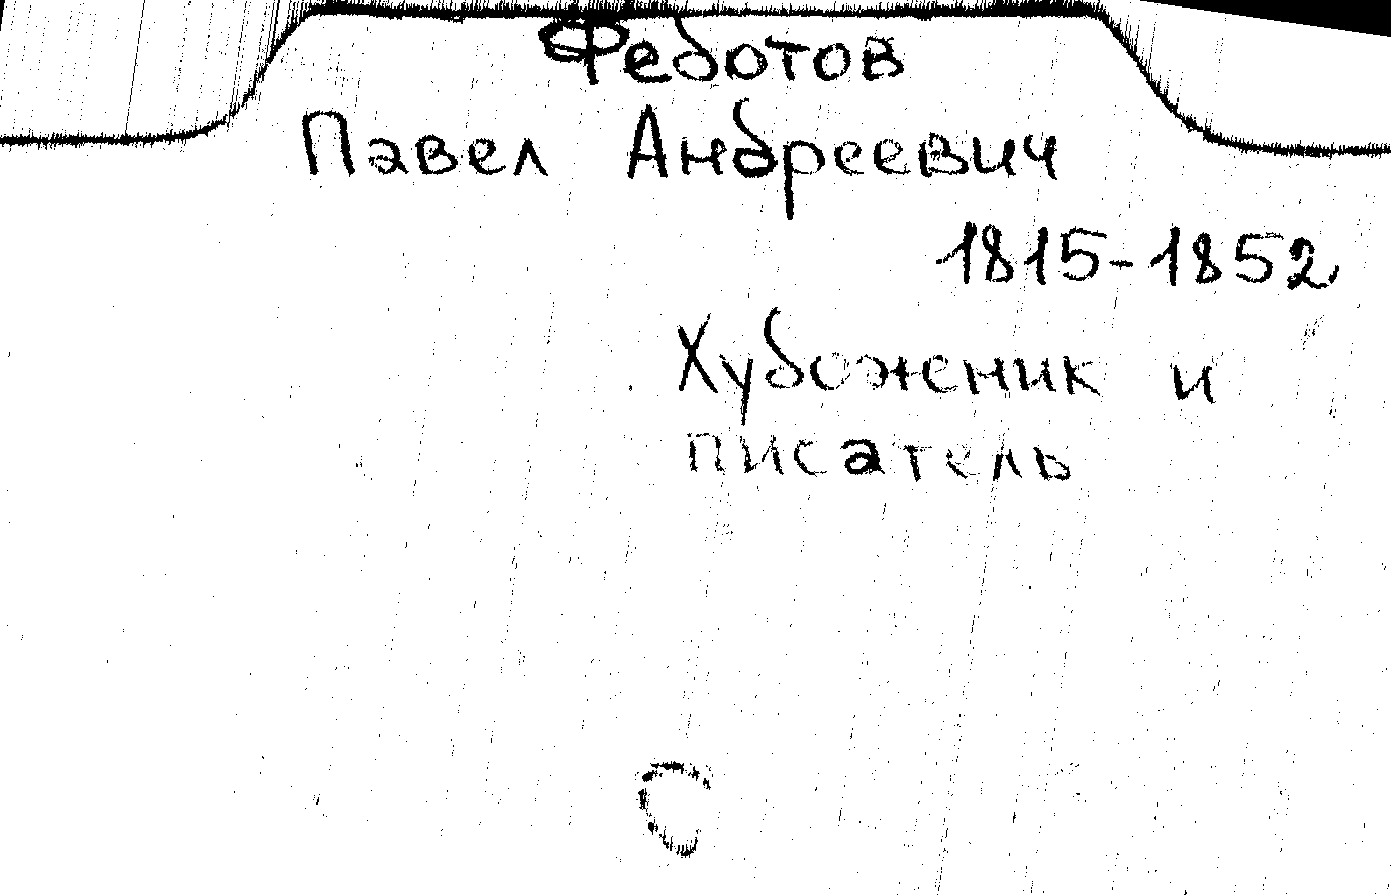 Федотов
Павел Андреевич
1815-1852
Художник и
писатель